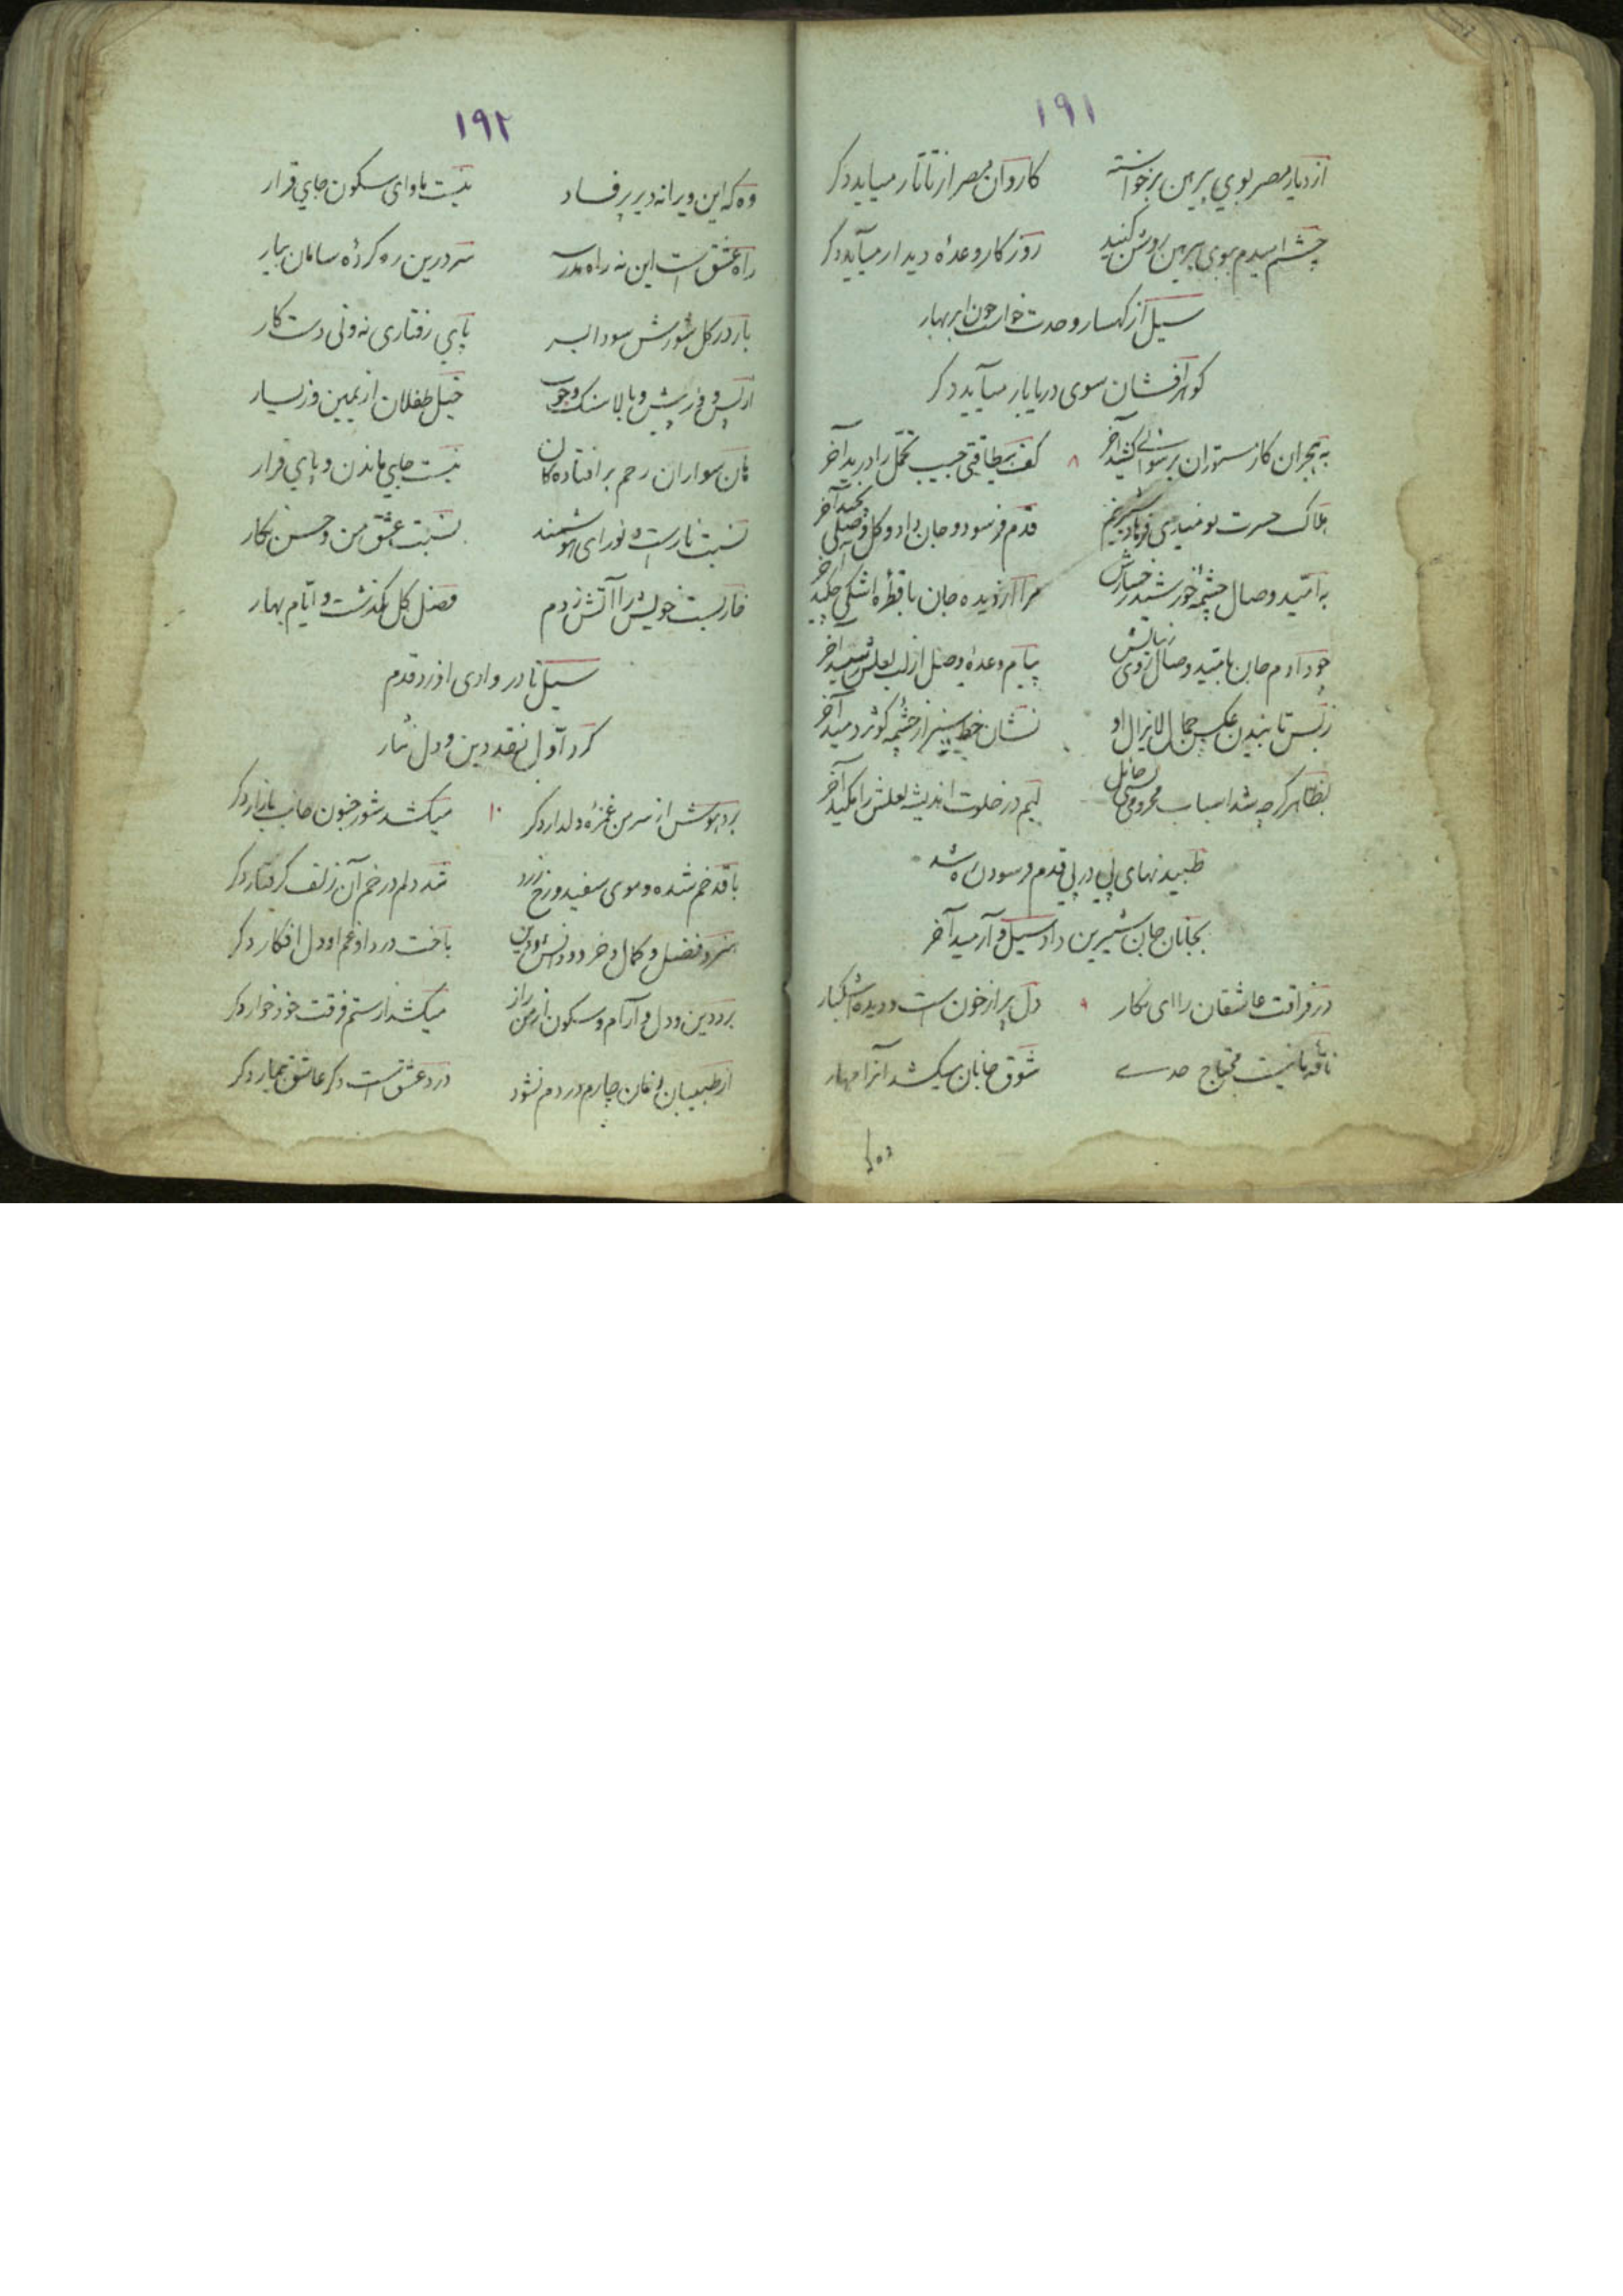 ١٩١
از دیار مصر بوی پیرهن برخواسته کاروان مصر از تاتار میاید دکر
چشم امیدم ببوی پیرهن روشن کنید روز کار وعدهٔ دیدار میآید دکر
سیل از کهسار وحدت خواست چون ابر بهار
کوهر افشان سوی دریا بار میآید دکر
به هجران کار مستوران برسوائی کشید آخر ٨ کف بیطاقتی جیب تحمل را درید آخر
هلاک حسرت قدم فرسود و جان داد و کل وصلی نچید آخر
به امید وصال چشمهٔ خورشید رخسارش مرا از دیده جان با قطرهٔ اشکی چکید آخر
چو دادم جان بامید وصال روی زیبایش پیام وعدهٔ وصل از لب لعلش شنید آخر
ز بس تابیدن عکس جمال لایزال او نشان خط سبز از چشمهٔ کوثر دمید آخر
بظاهر کرچه شد اسباب محرومی حائل لبم در خلوت اندیشه لعلش را مکید آخر
طپیدنهای پی در پی قدم فرسود ره شد
بجانان جان شیرین داد سیل و آرمید آخر
در فراقت عاشقان را ای نکار ٩ دل پر از خون است و دیده اشکبار
ناقهٔ ما نیست محتاج حدے شوق جانان میکشد آنرا مهار
وه که
١٩٢
وه که این ویرانه دیر پر فساد نیست ماوای سکون جای قرار
راه عشق است این نه راه مدرسه سر درین ره کردهٔ سامان بیار
بار در کل شورش سودا بسر پای رفتاری نه و نی دست کار
از پس و در پیش و بالا سنک و چوب خیل طفلان از یمین و ز یسار
هان سواران رحم بر افتادهکان نیست جای ماندن و پای قرار
نسبت نار است و نور ای هوشمند نسبت عشق من و حسن نکار
خار بست خویش را آتش زدم فصل کل بکذشت و ایام بهار
سیل تا در وادی او زد قدم
کرد اول نقد دین و دل نثار
برد هوش از سر من غمزهٔ دلدار دکر ١٠ میکشد شور جنون جانب بازار دکر
با قد خم شده و موی سفید و رخ زرد شد دلم در خم آن زلف کرفتار دکر
هنر و فضل و کمال و خرد و دانش و دین باخت در داو غم او دل افکار دکر
برد دین و دل و آرام و سکون از من زار میکشد از ستم فرقت خود خوار دکر
از طبیبان زمان چاره دردم نشود درد عشق است دکر عاشق بیمار دکر